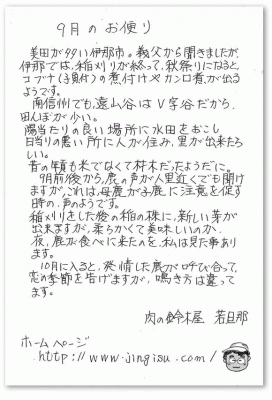 9月のお便り
美田が多い伊那市。義父から聞きましたが
伊那では、稲刈りが終って、秋祭りになると、
コブナ(子鮒)の煮付けやカンロ煮が出る
ようです。
南信州でも、遠山谷はV字谷だから、
田んぼが少い。
陽当たりの良い場所に水田をおこし
日当りの悪い所に人が住み、里が出来たら
しい。
昔の年貢も米でなくて材木だったようだに。
9月前後から、鹿の声が人里近くでも聞け
ますが、これは、母鹿が子鹿に注意を促す
時の、声のようです。
稲刈りをした後の稲の株に、新しい芽が
出来ますが、柔らかくて美味しいのか、
夜、鹿が食べに来たのを、私は見た事あり
ます。
10月に入ると、発情した鹿が口呼び合って、
恋の季節を告げますが、鳴き方は違って
ます。
肉の鈴木屋 若旦那
ホームページ
http://www.jingisu.com/